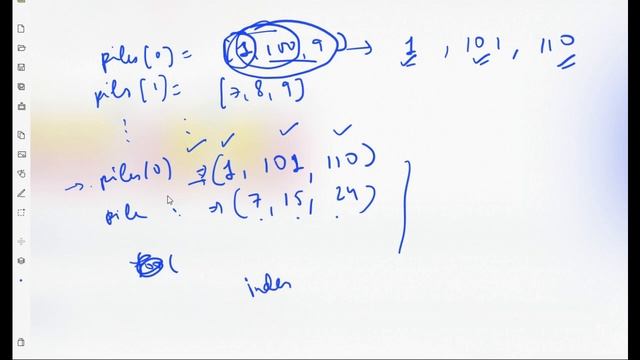 piles(0) = [1, 100, 9] → 1, 101, 110
piles[1] = [7, 8, 9]
→ piles(0) ⇒ (1, 101, 110)
pile ⇒ (7, 15, 24)
(
index